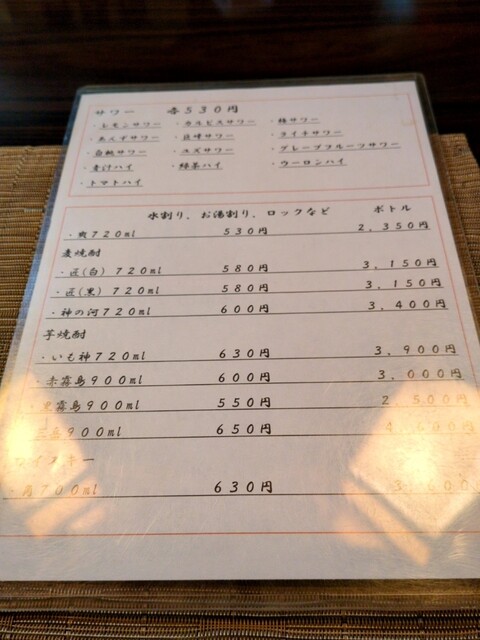 サワー 各530円
・レモンサワー ・カルピスサワー ・梅サワー
・あんずサワー ・巨峰サワー ・ライチサワー
・白桃サワー ・ユズサワー ・グレープフルーツサワー
・青汁ハイ ・緑茶ハイ ・ウーロンハイ
・トマトハイ
水割り、お湯割り、ロックなど ボトル
・爽720ml 530円 2,350円
麦焼酎
・匠(白)720ml 580円 3,150円
・匠(黒)720ml 580円 3,150円
・神の河720ml 600円 3,400円
芋焼酎
・いも神720ml 630円 3,900円
・赤霧島900ml 600円 3,000円
・黒霧島900ml 550円 2,500円
三岳900ml 650円 4,600円
ウイスキー
・角700ml 630円 3,600